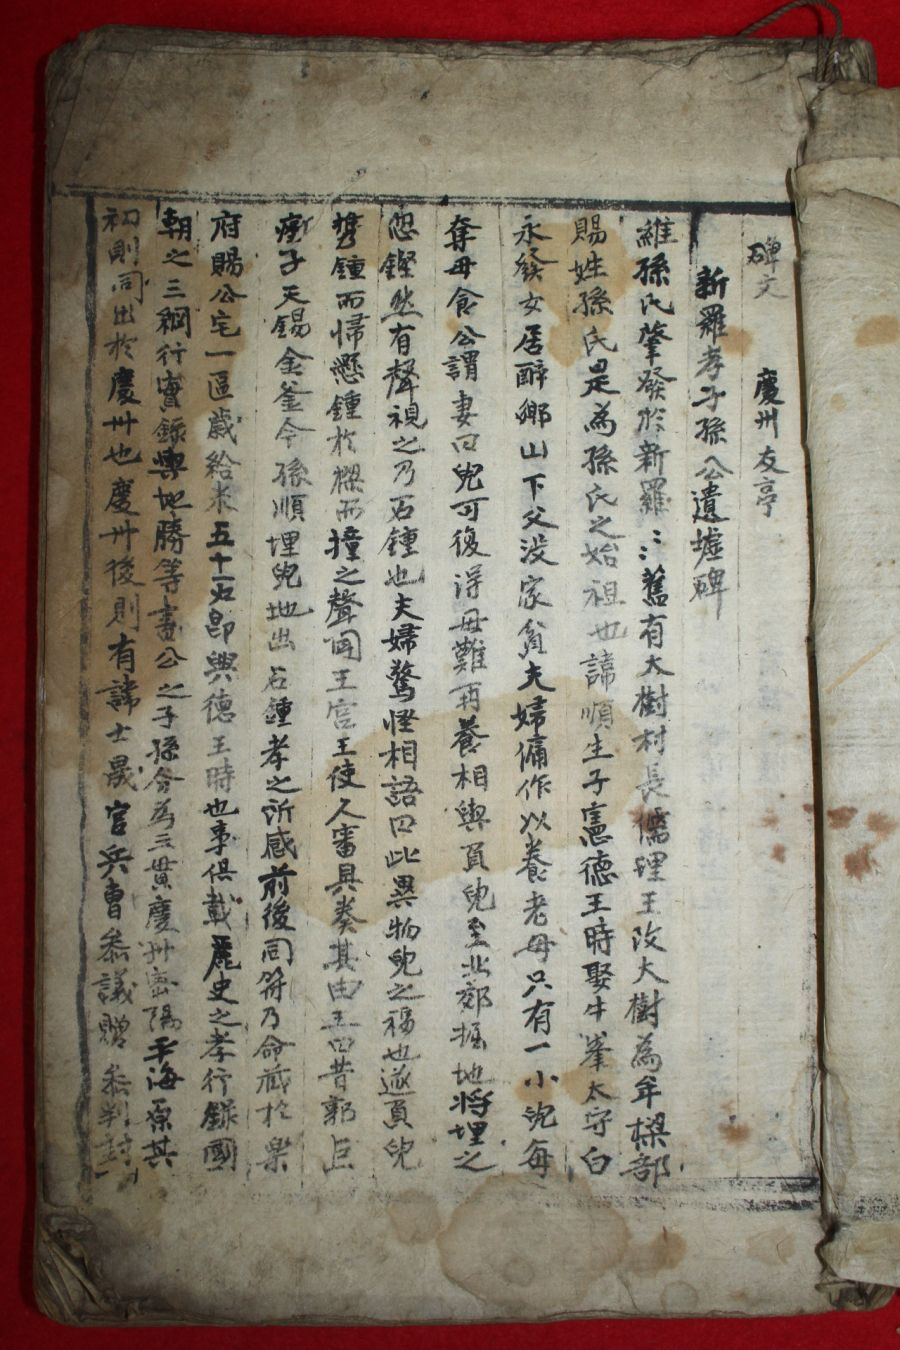 碑文 慶州友亭
新羅孝子孫公遺墟碑
維孫氏肇發於新羅〻〻舊有大樹村長儒理王改大樹為牟樑部
賜姓孫氏是為孫氏之始祖也諱順生子憲德王時娶牛峯太守白
永發女居醉鄉山下父没家貧夫婦傭作以養老母只有一小兒每
奪母食公謂妻曰兒可復得母難再養相與負兒至北郊掘地將埋之
忽鏗然有聲視之乃石鍾也夫婦驚怪相語曰此異物兒之福也遂負兒
携鍾而歸懸鍾於樑而撞之聲聞王宮王使人審具奏其由王曰昔郭巨
瘞子天錫金釜今孫順埋兒地出石鍾孝之所感前後同符乃命藏於樂
府賜公宅一區歲給米五十石即興德王時也事俱載麗史之孝行錄國
朝之三綱行實錄輿地勝等書公之子孫分為三貫慶州密陽平海原其
初則同出於慶卅也慶卅後則有諱士晟官兵曹叅議贈叅判封